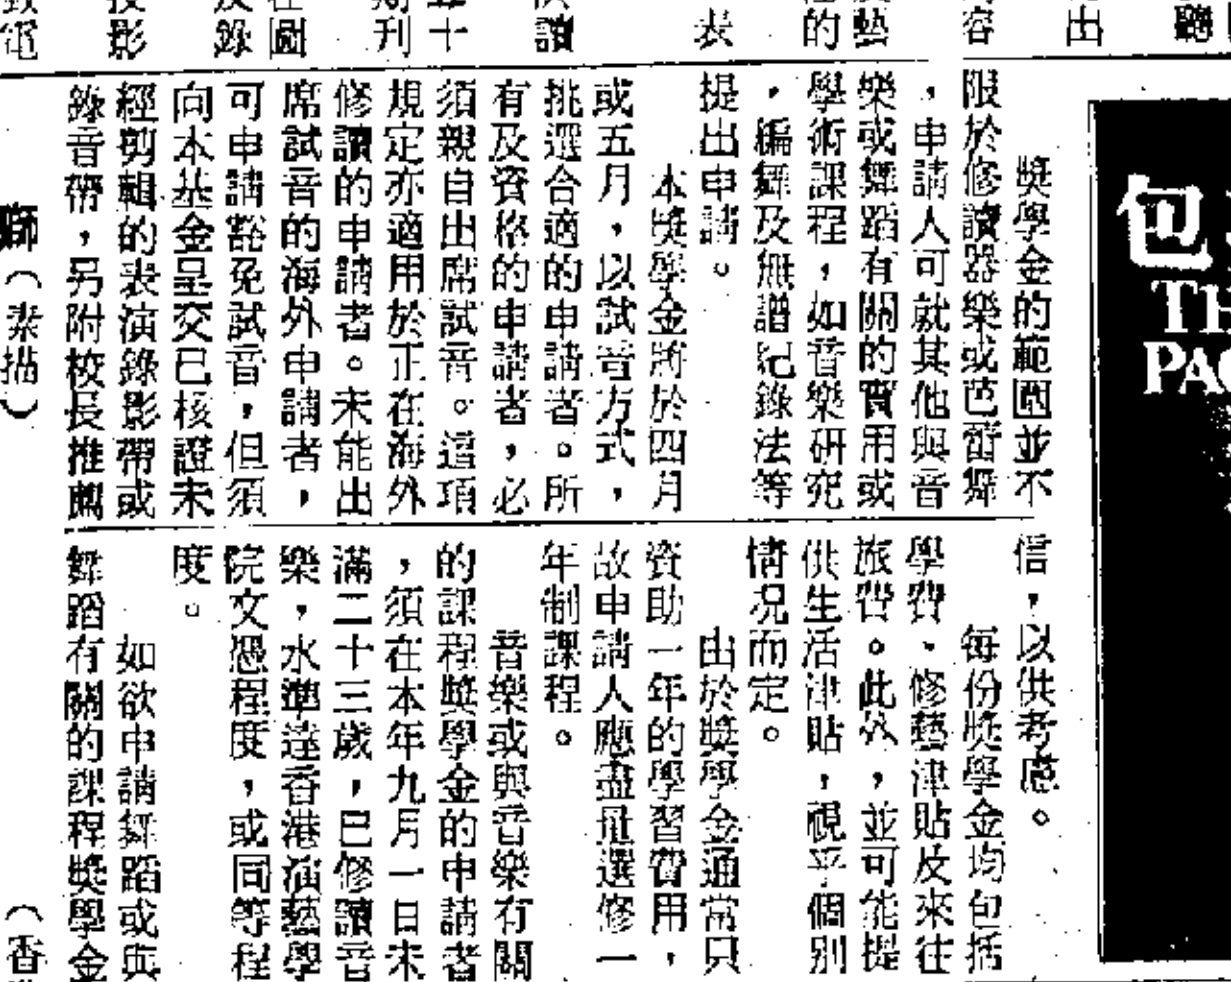 獎學金的範圍並不
限於修讀器樂或芭蕾舞
，申請人可就其他與音
樂或舞蹈有關的實用或
學術課程，如音樂研究
，編舞及舞譜紀錄法等
提出申請。
本獎學金將於四月
或五月，以試音方式，
挑選合適的申請者。所
有及資格的申請者，必
須親自出席試音。這項
規定亦適用於正在海外
修讀的申請者。未能出
席試音的海外申請者，
可申請豁免試音，但須
向本基金呈交已核證未
經剪輯的表演錄影帶或
錄音帶，另附校長推薦
信，以供考慮。
每份獎學金均包括
學費、修藝津貼及來往
旅費。此外，並可能提
供生活津貼，視乎個別
情況而定。
由於獎學金通常只
資助一年的學習費用，
故申請人應盡量選修一
年制課程。
音樂或與音樂有關
的課程獎學金的申請者
，須在本年九月一日未
滿二十三歲，已修讀音
樂，水準達香港演藝學
院文憑程度，或同等程
度。
如欲申請舞蹈或與
舞蹈有關的課程獎學金
獅（素描）
（香
包
TH
PAO
聽
出
容
藝
的
表
讀
十
刊
圖
錄
影
電